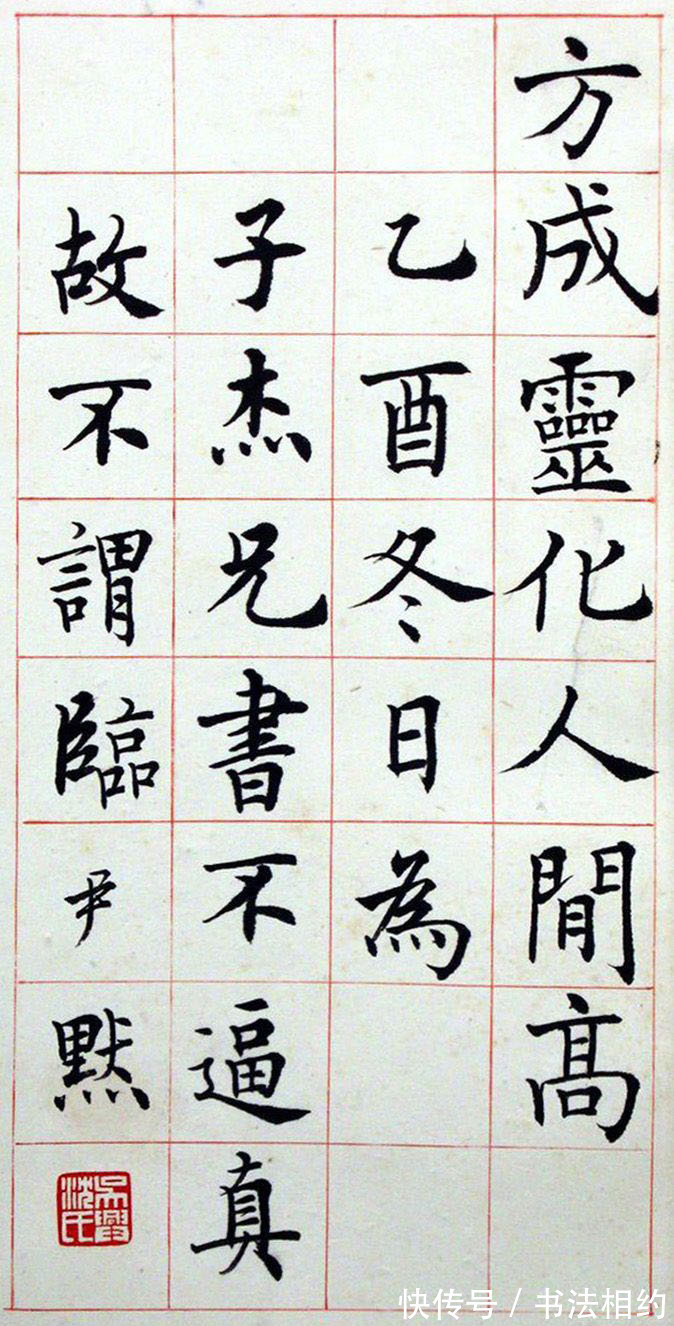 方成靈化人閒髙
乙酉冬日為
子杰兄書不逼真
故不謂臨尹黙
吳興沈氏
快传号 / 书法相约